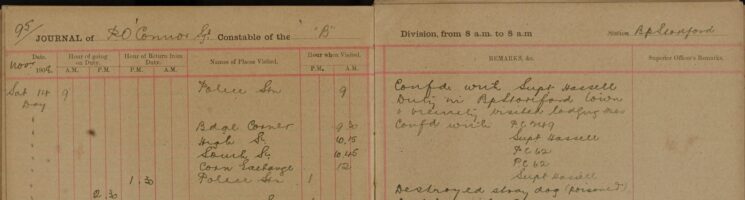 95
JOURNAL of P O'Connor Sgt Constable of the "B" Division, from 8 a.m. to 8 a.m Station Bp Stortford
Date. Hour of going on Duty. Hour of Return from Duty. Names of Places Visited. Hour when Visited. REMARKS, &c. Superior Officer's Remarks.
Novr 190 A.M. P.M. A.M. P.M. P.M. A.M.
Sat 14 9 Police Stn 9 Confd with Supt Hassell
Day Duty in Bp Stortford town
& vicinity visited lodging
Bdge Corner 9 30 Confd with PC 249
High St 10.15 Supt Hassell
South St 10.45 PC 62
Corn Exchange 12 PC 62
1.30 Police Stn 1 Supt Hassell
2.30 Destroyed stray dog (poisoned)